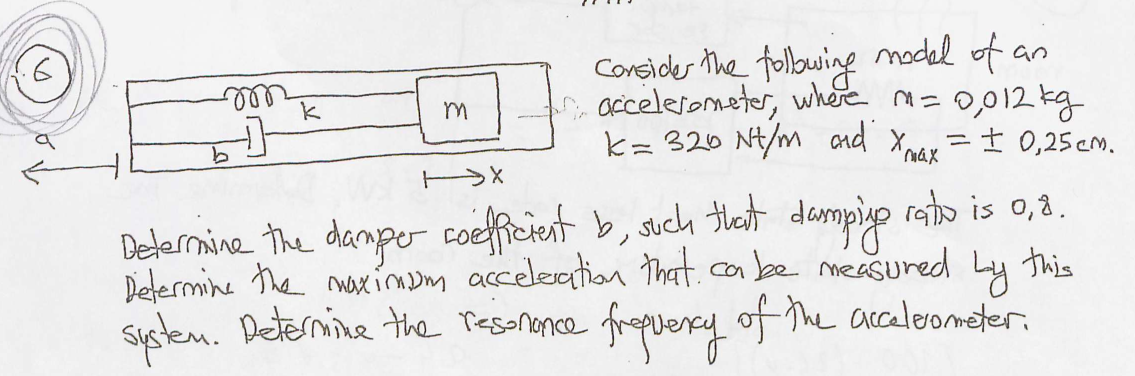 6
Consider the following model of an
accelerometer, where m = 0,012 kg
k = 320 Nt/m and x max = ± 0,25 cm.
a
k
m
b
x
Determine the damper coefficient b, such that damping ratio is 0,8.
Determine the maximum acceleration that can be measured by this
system. Determine the resonance frequency of the accelerometer.